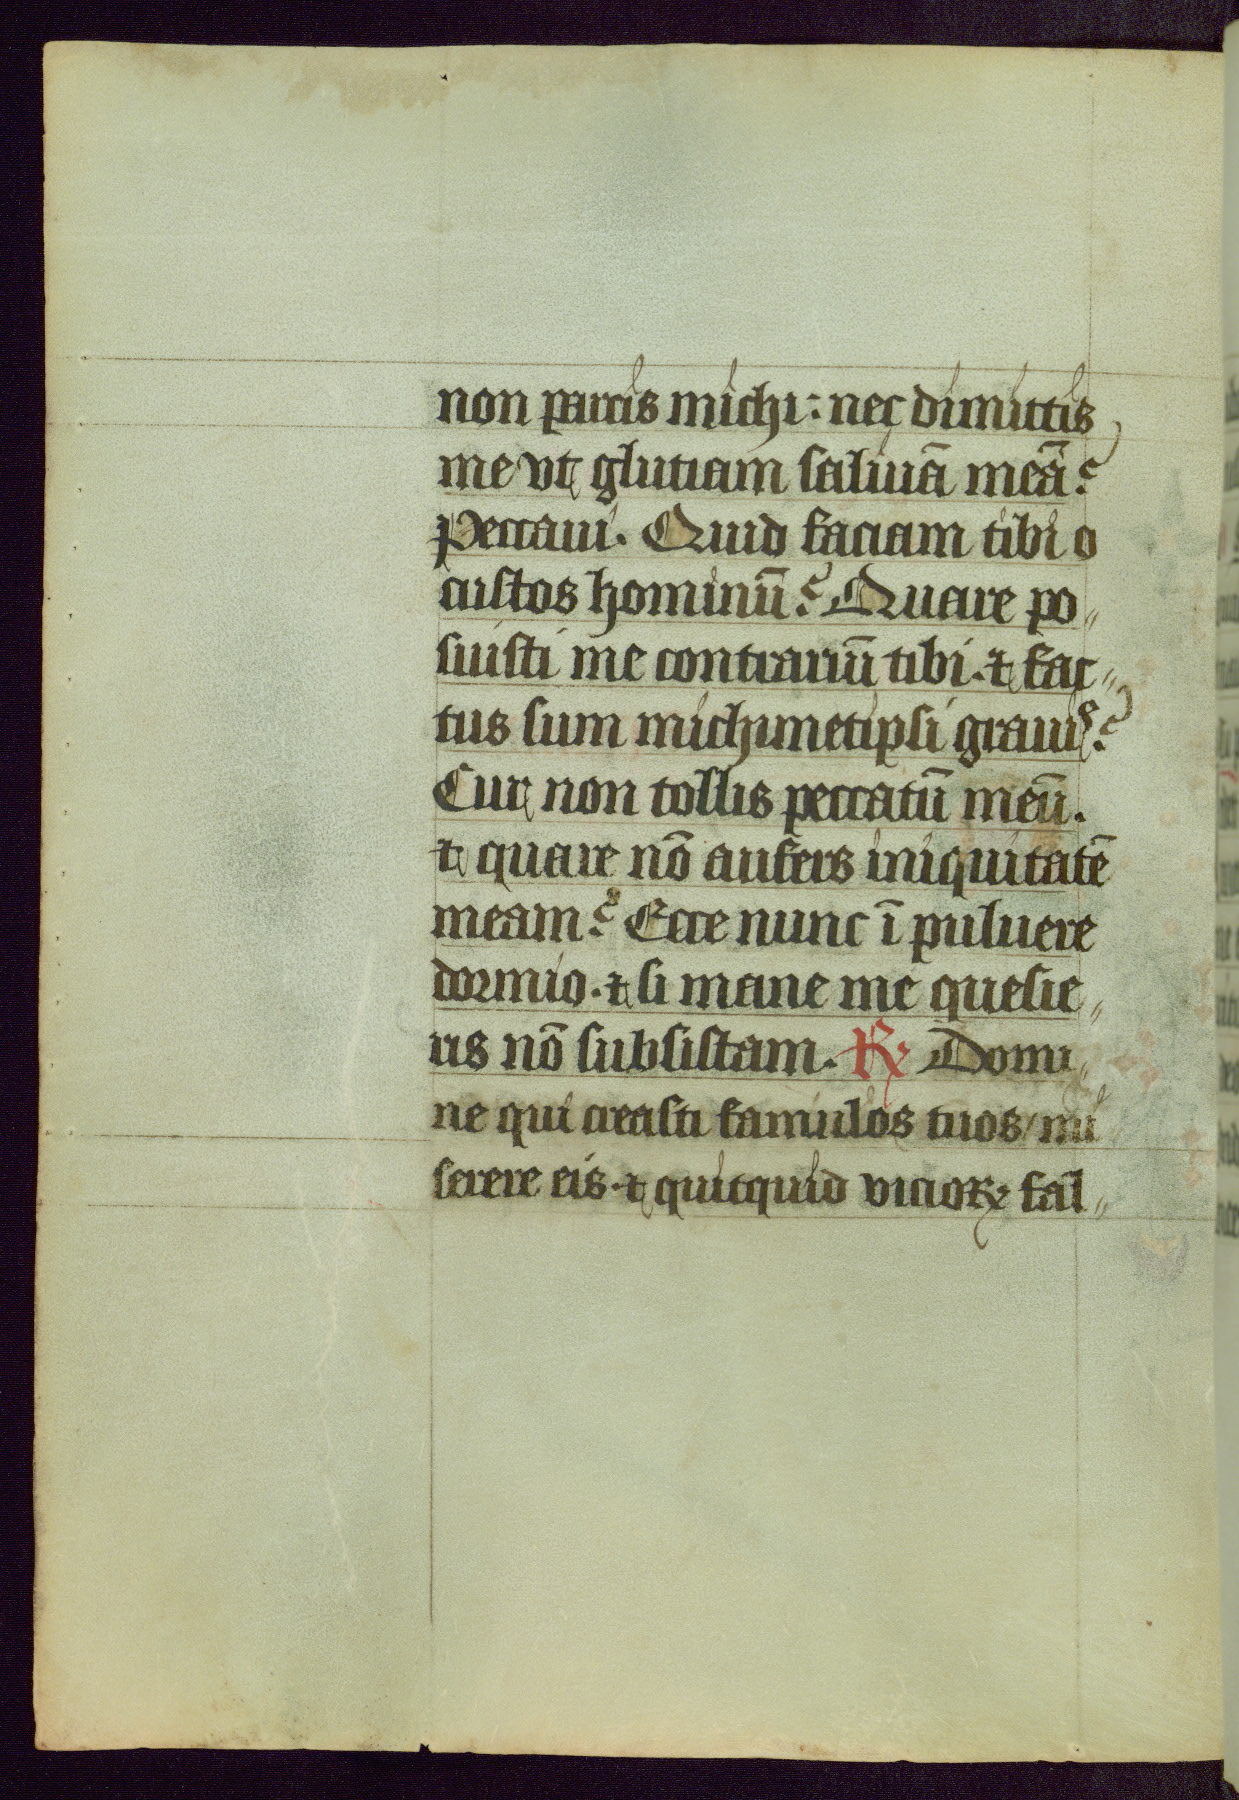 non parcis michi: nec dimittis
me vt glutiam saliuā meā?
Peccaui. Quid faciam tibi o
custos hominū? Quare po„
suisti me contrariū tibi. ⁊ fac„
tus sum michimetipsi grauiꝰ?
Cur non tollis peccatū meū.
⁊ quare nō aufers iniquitatē
meam? Ecce nunc ī puluere
dormio. ⁊ si mane me quesie„
ris nō subsistam. ℟ Domi„
ne qui creasti famulos tuos/ mi
serere eis. ⁊ quitquid vicioꝝ fal„